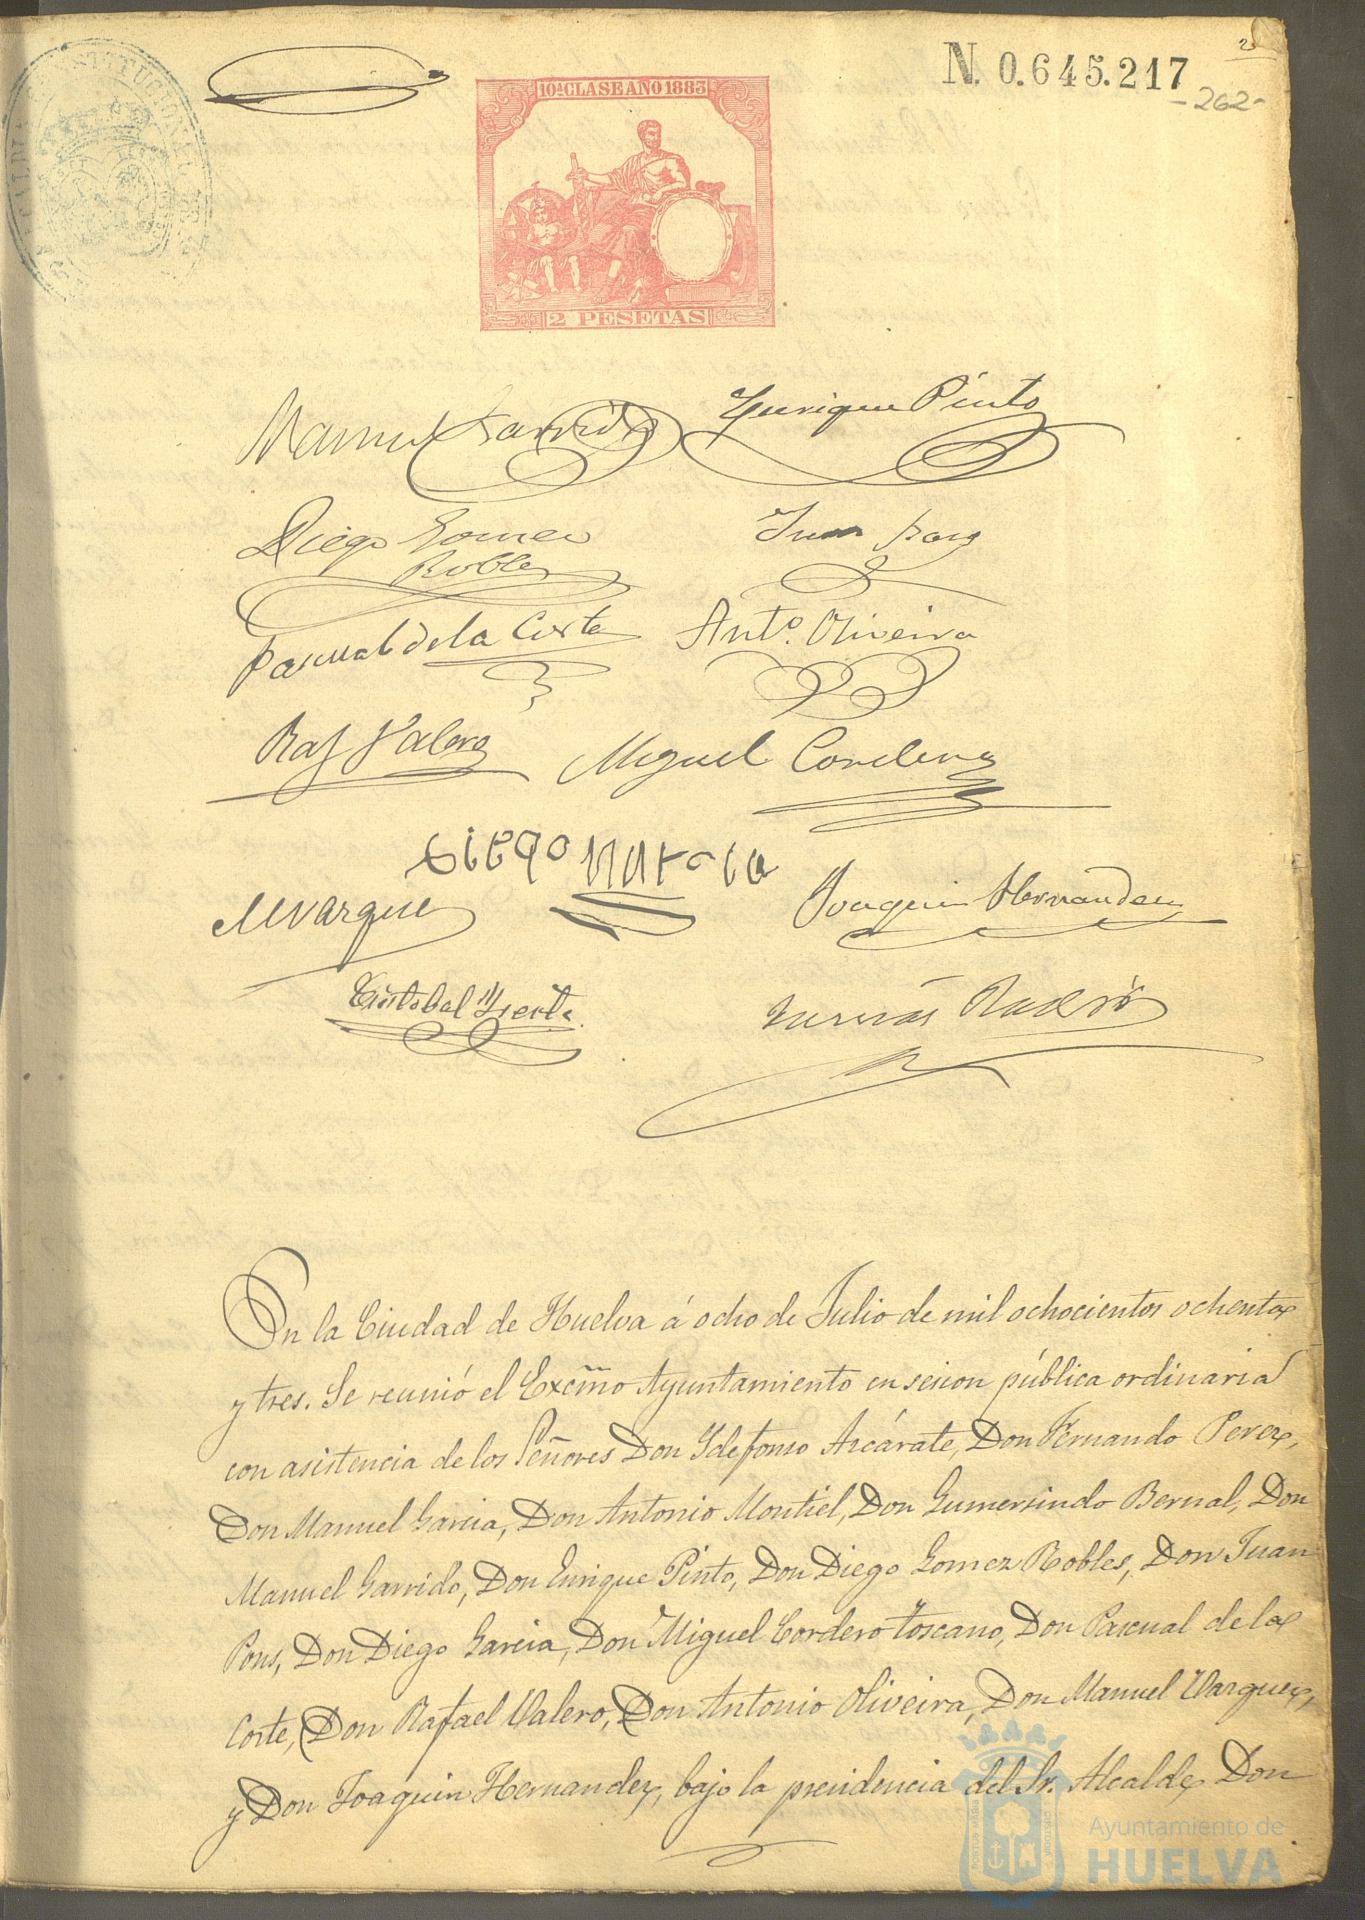 N. 0.645.217
2
-262-
10ª CLASE AÑO 1883
2 PESETAS
Manuel Garrido
Enrique Pinto
Diego Gomez
Robles
Juan Pons
Pascual de la Corte
Antº. Oliveira
Raf Valero
Miguel Cordero
Diego Garcia
MVarguez
Joaquin Hernandez
En la Ciudad de Huelva á ocho de Julio de mil ochocientos ochenta
y tres. Se reunió el Excmo Ayuntamiento en sesion pública ordinaria
con asistencia de los Señores Don Ildefonso Azcárate, Don Fernando Perez,
Don Manuel Garcia, Don Antonio Montiel, Don Gumersindo Bernal, Don
Manuel Garrido, Don Enrique Pinto, Don Diego Gomez Robles, Don Juan
Pons, Don Diego Garcia, Don Miguel Cordero Toscano, Don Pascual de la
Corte, Don Rafael Valero, Don Antonio Oliveira, Don Manuel Varguez,
y Don Joaquin Hernandez, bajo la presidencia del Sr. Alcalde Don
Ayuntamiento de
HUELVA